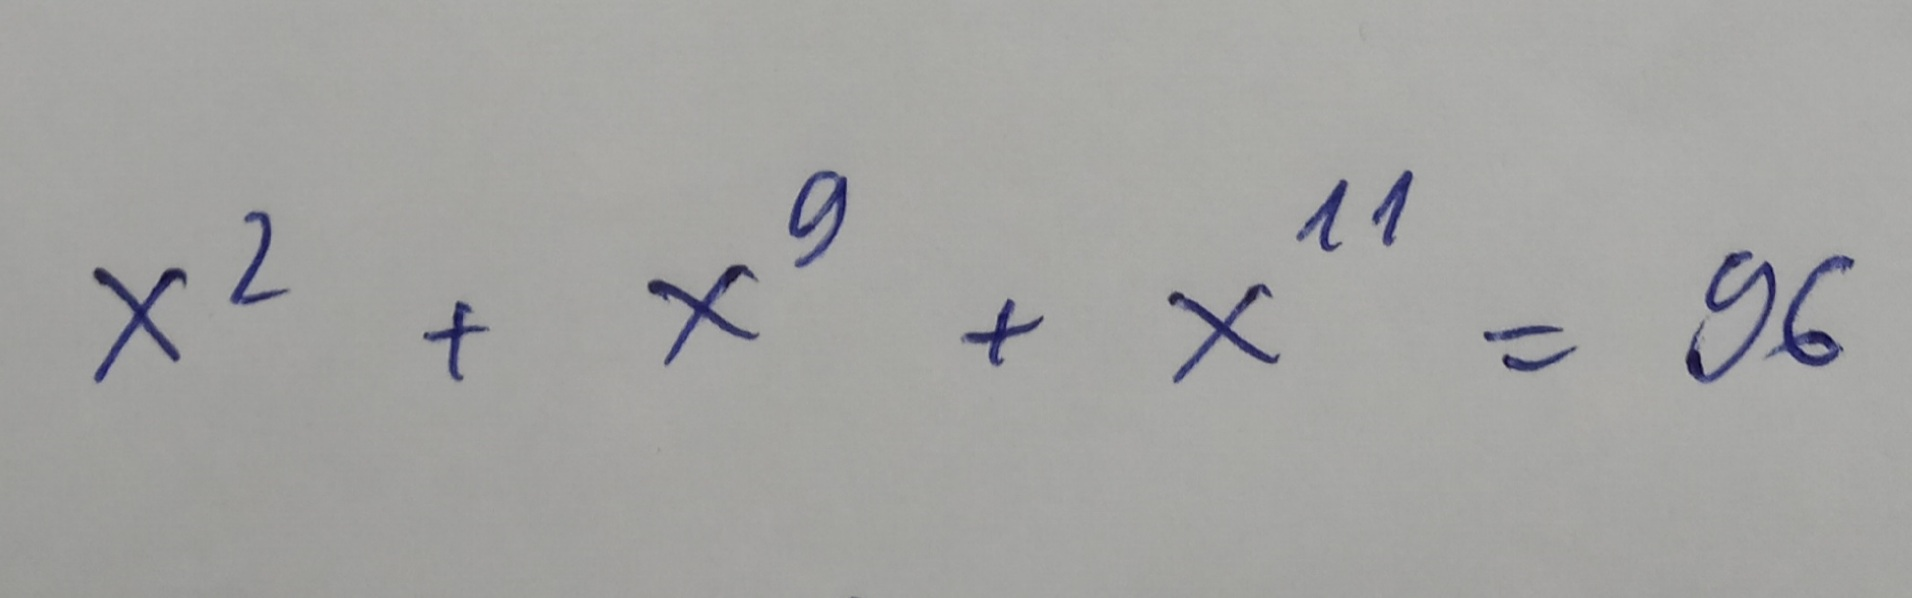 x² + x⁹ + x¹¹ = 96